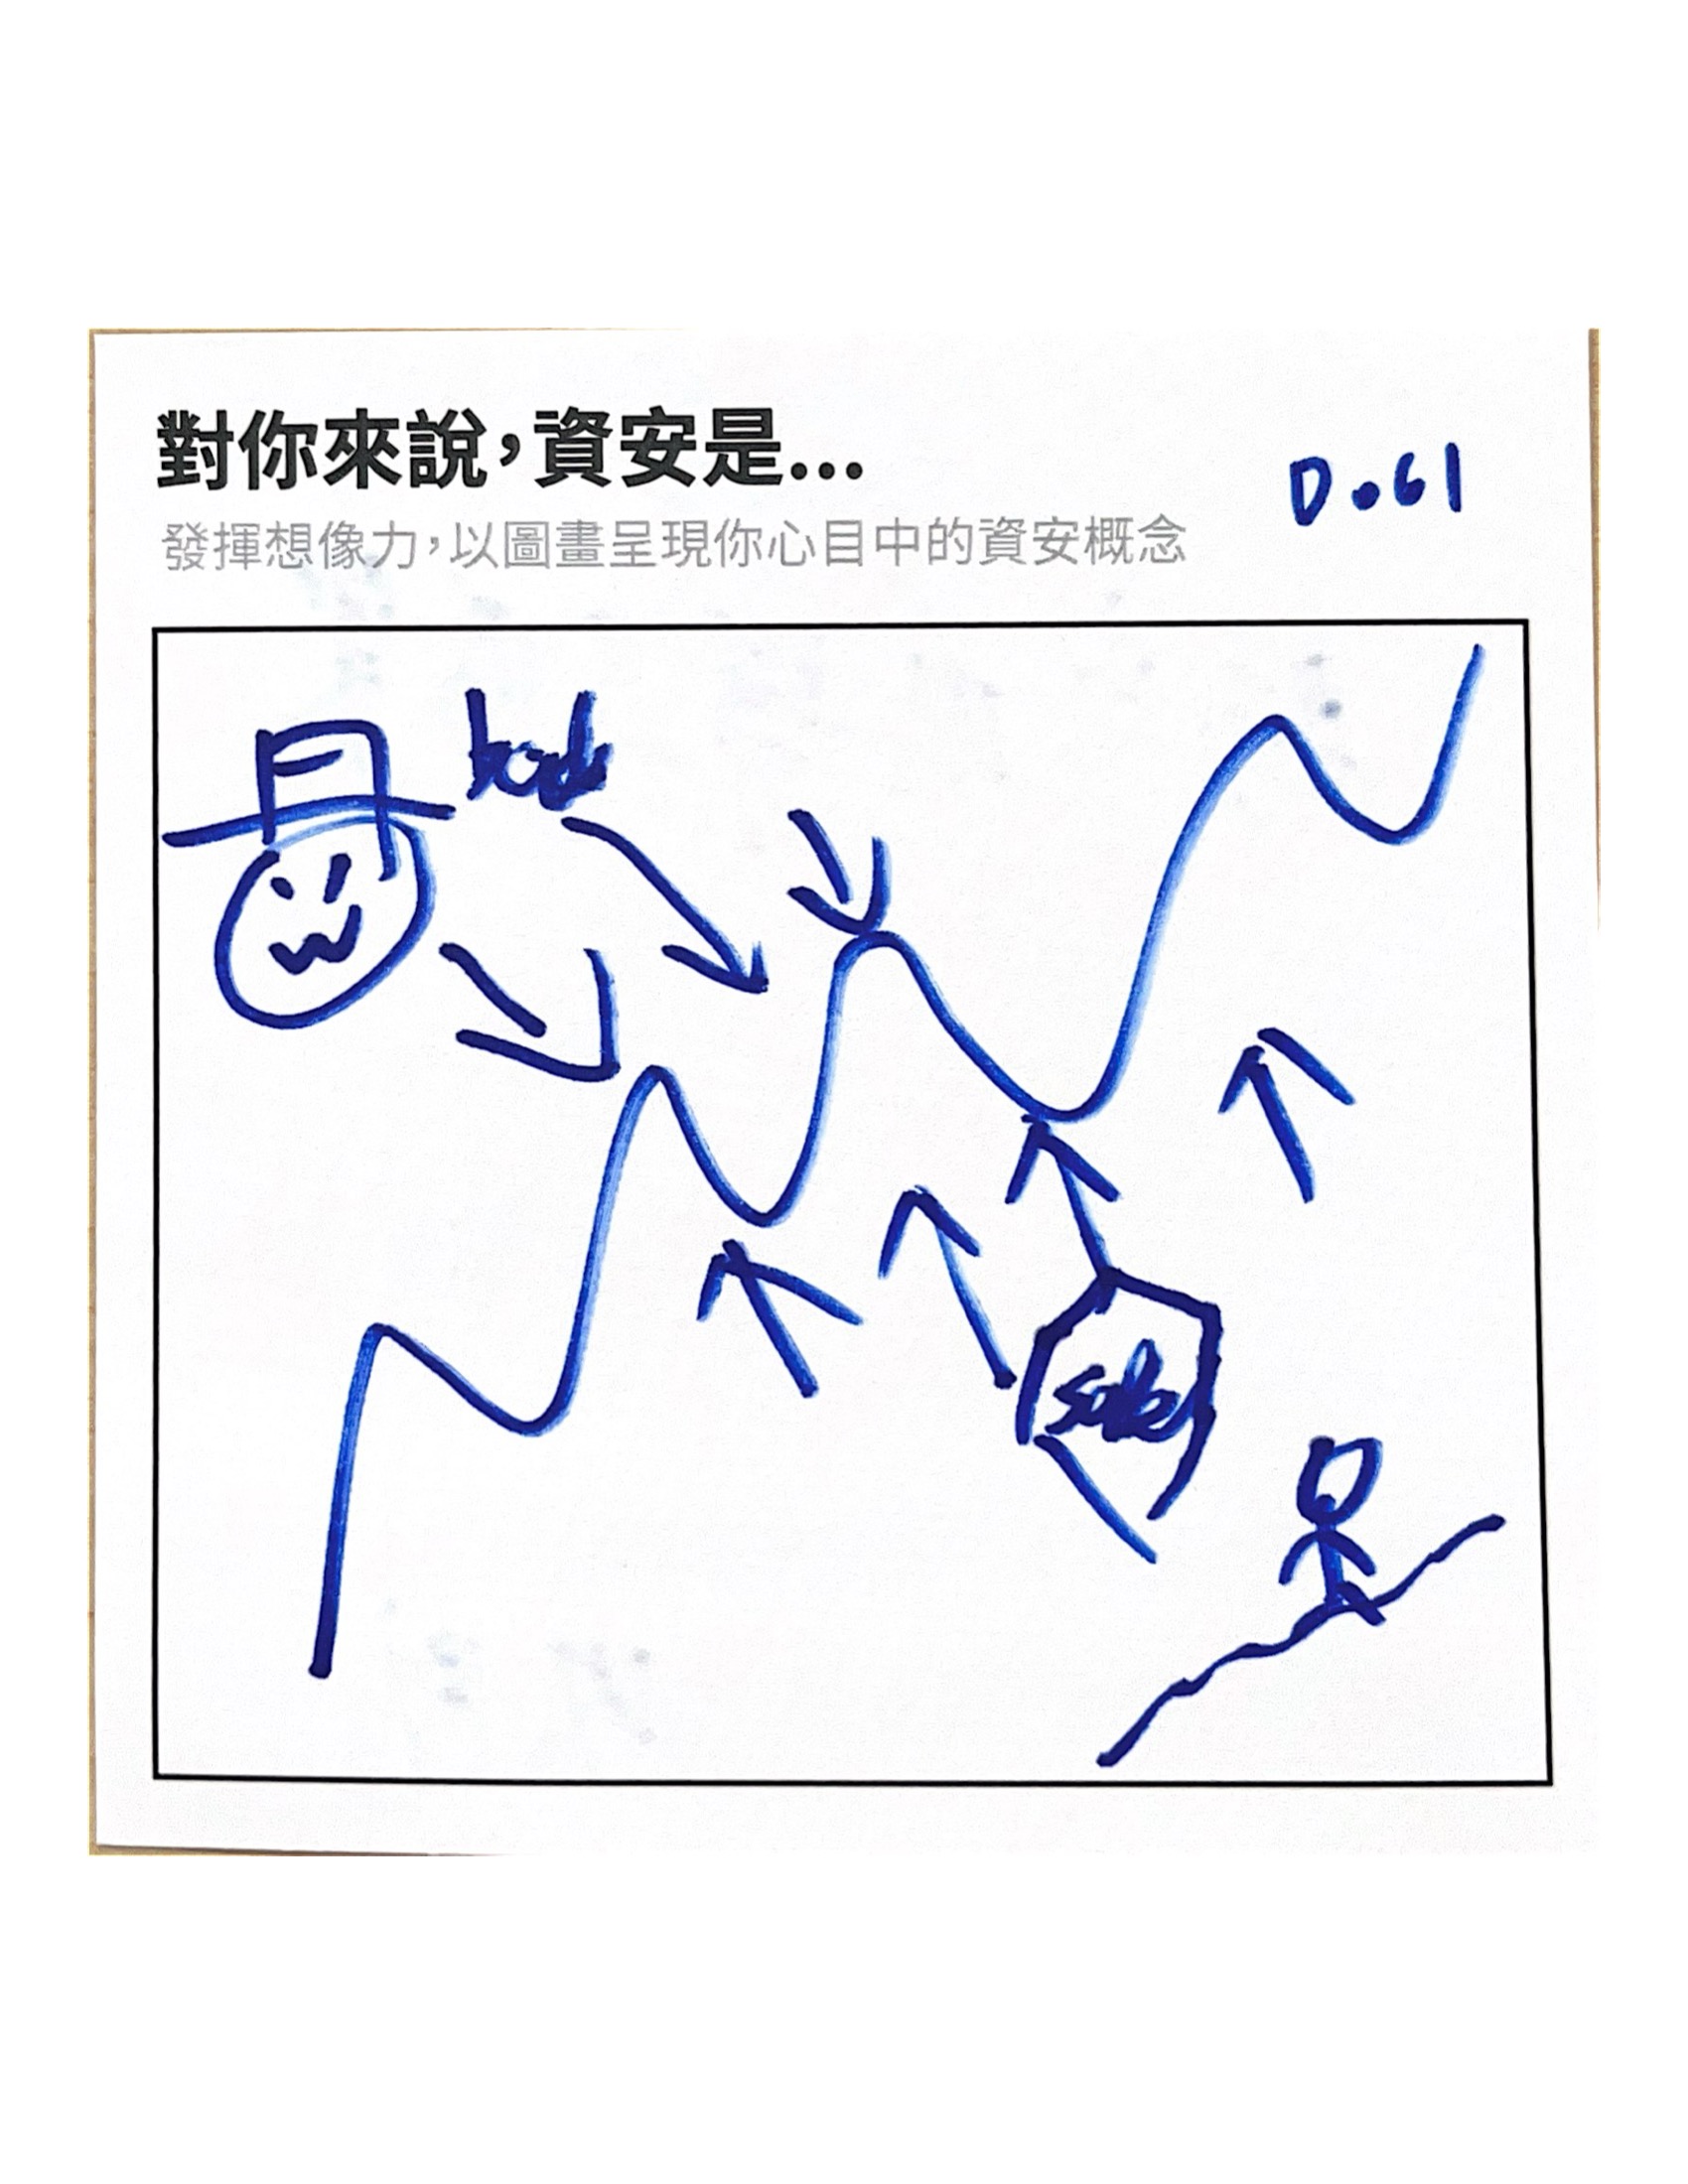 對你來說，資安是...
D.61
發揮想像力，以圖畫呈現你心目中的資安概念
safe